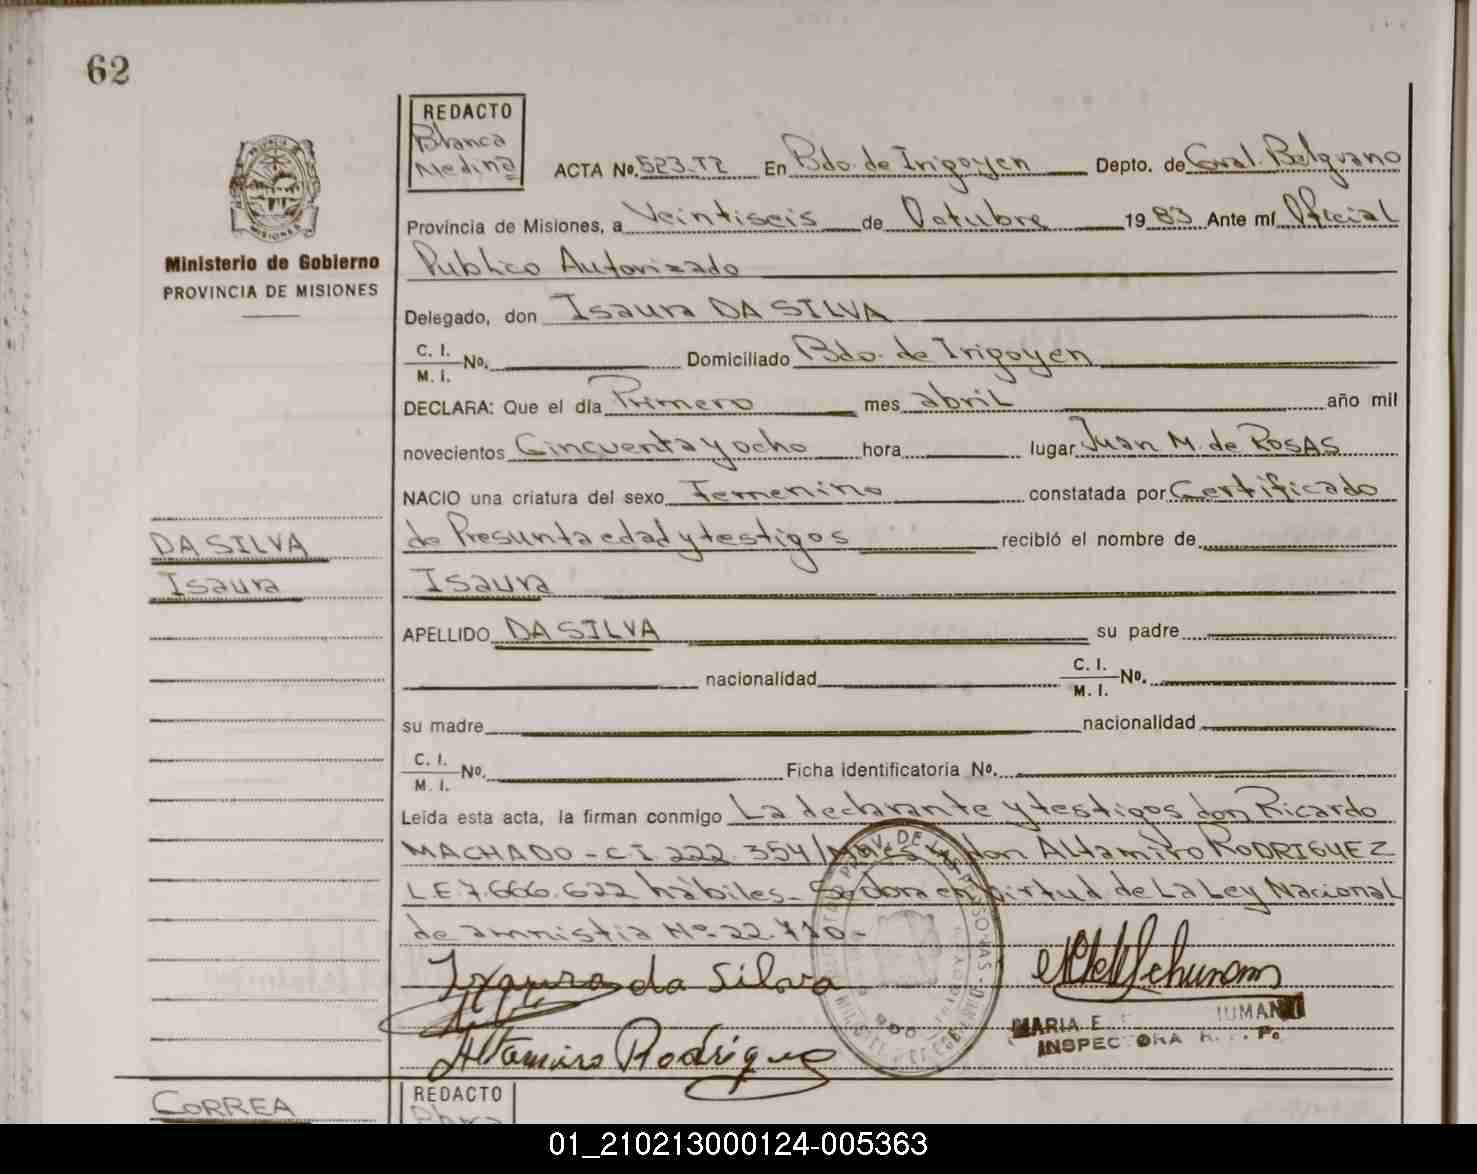 62
REDACTO
Blanca
Medina
ACTA No. 523-T2 En Bdo. de Irigoyen Depto. de Gral. Belgrano
Provincia de Misiones, a Veintiseis de Octubre 19 83 Ante mí Oficial
Publico Autorizado
Ministerio de Gobierno
PROVINCIA DE MISIONES
Delegado, don Isaura DA SILVA
C. I.
M. I. No. Domiciliado Bdo. de Irigoyen
DECLARA: Que el día Primero mes abril año mil
novecientos Cincuenta y ocho hora lugar Juan M. de ROSAS
NACIO una criatura del sexo Femenino constatada por Certificado
de Presunta edad y testigos recibió el nombre de
DA SILVA
Isaura
Isaura
APELLIDO DA SILVA su padre
nacionalidad C. I.
M. I. No.
su madre nacionalidad
C. I.
M. I. No. Ficha identificatoria No.
Leída esta acta, la firman conmigo La declarante y testigos don Ricardo
MACHADO - C I 222.354/ don Altamiro RODRIGUEZ
L.E 7.666.622 hábiles. virtud de La Ley Nacional
de amnistia Nº 22.710-
Isaura da Silva
Altamiro Rodrigue
MARIA E. HUMAN
INSPECTORA R. P.
CORREA
REDACTO
01_210213000124-005363